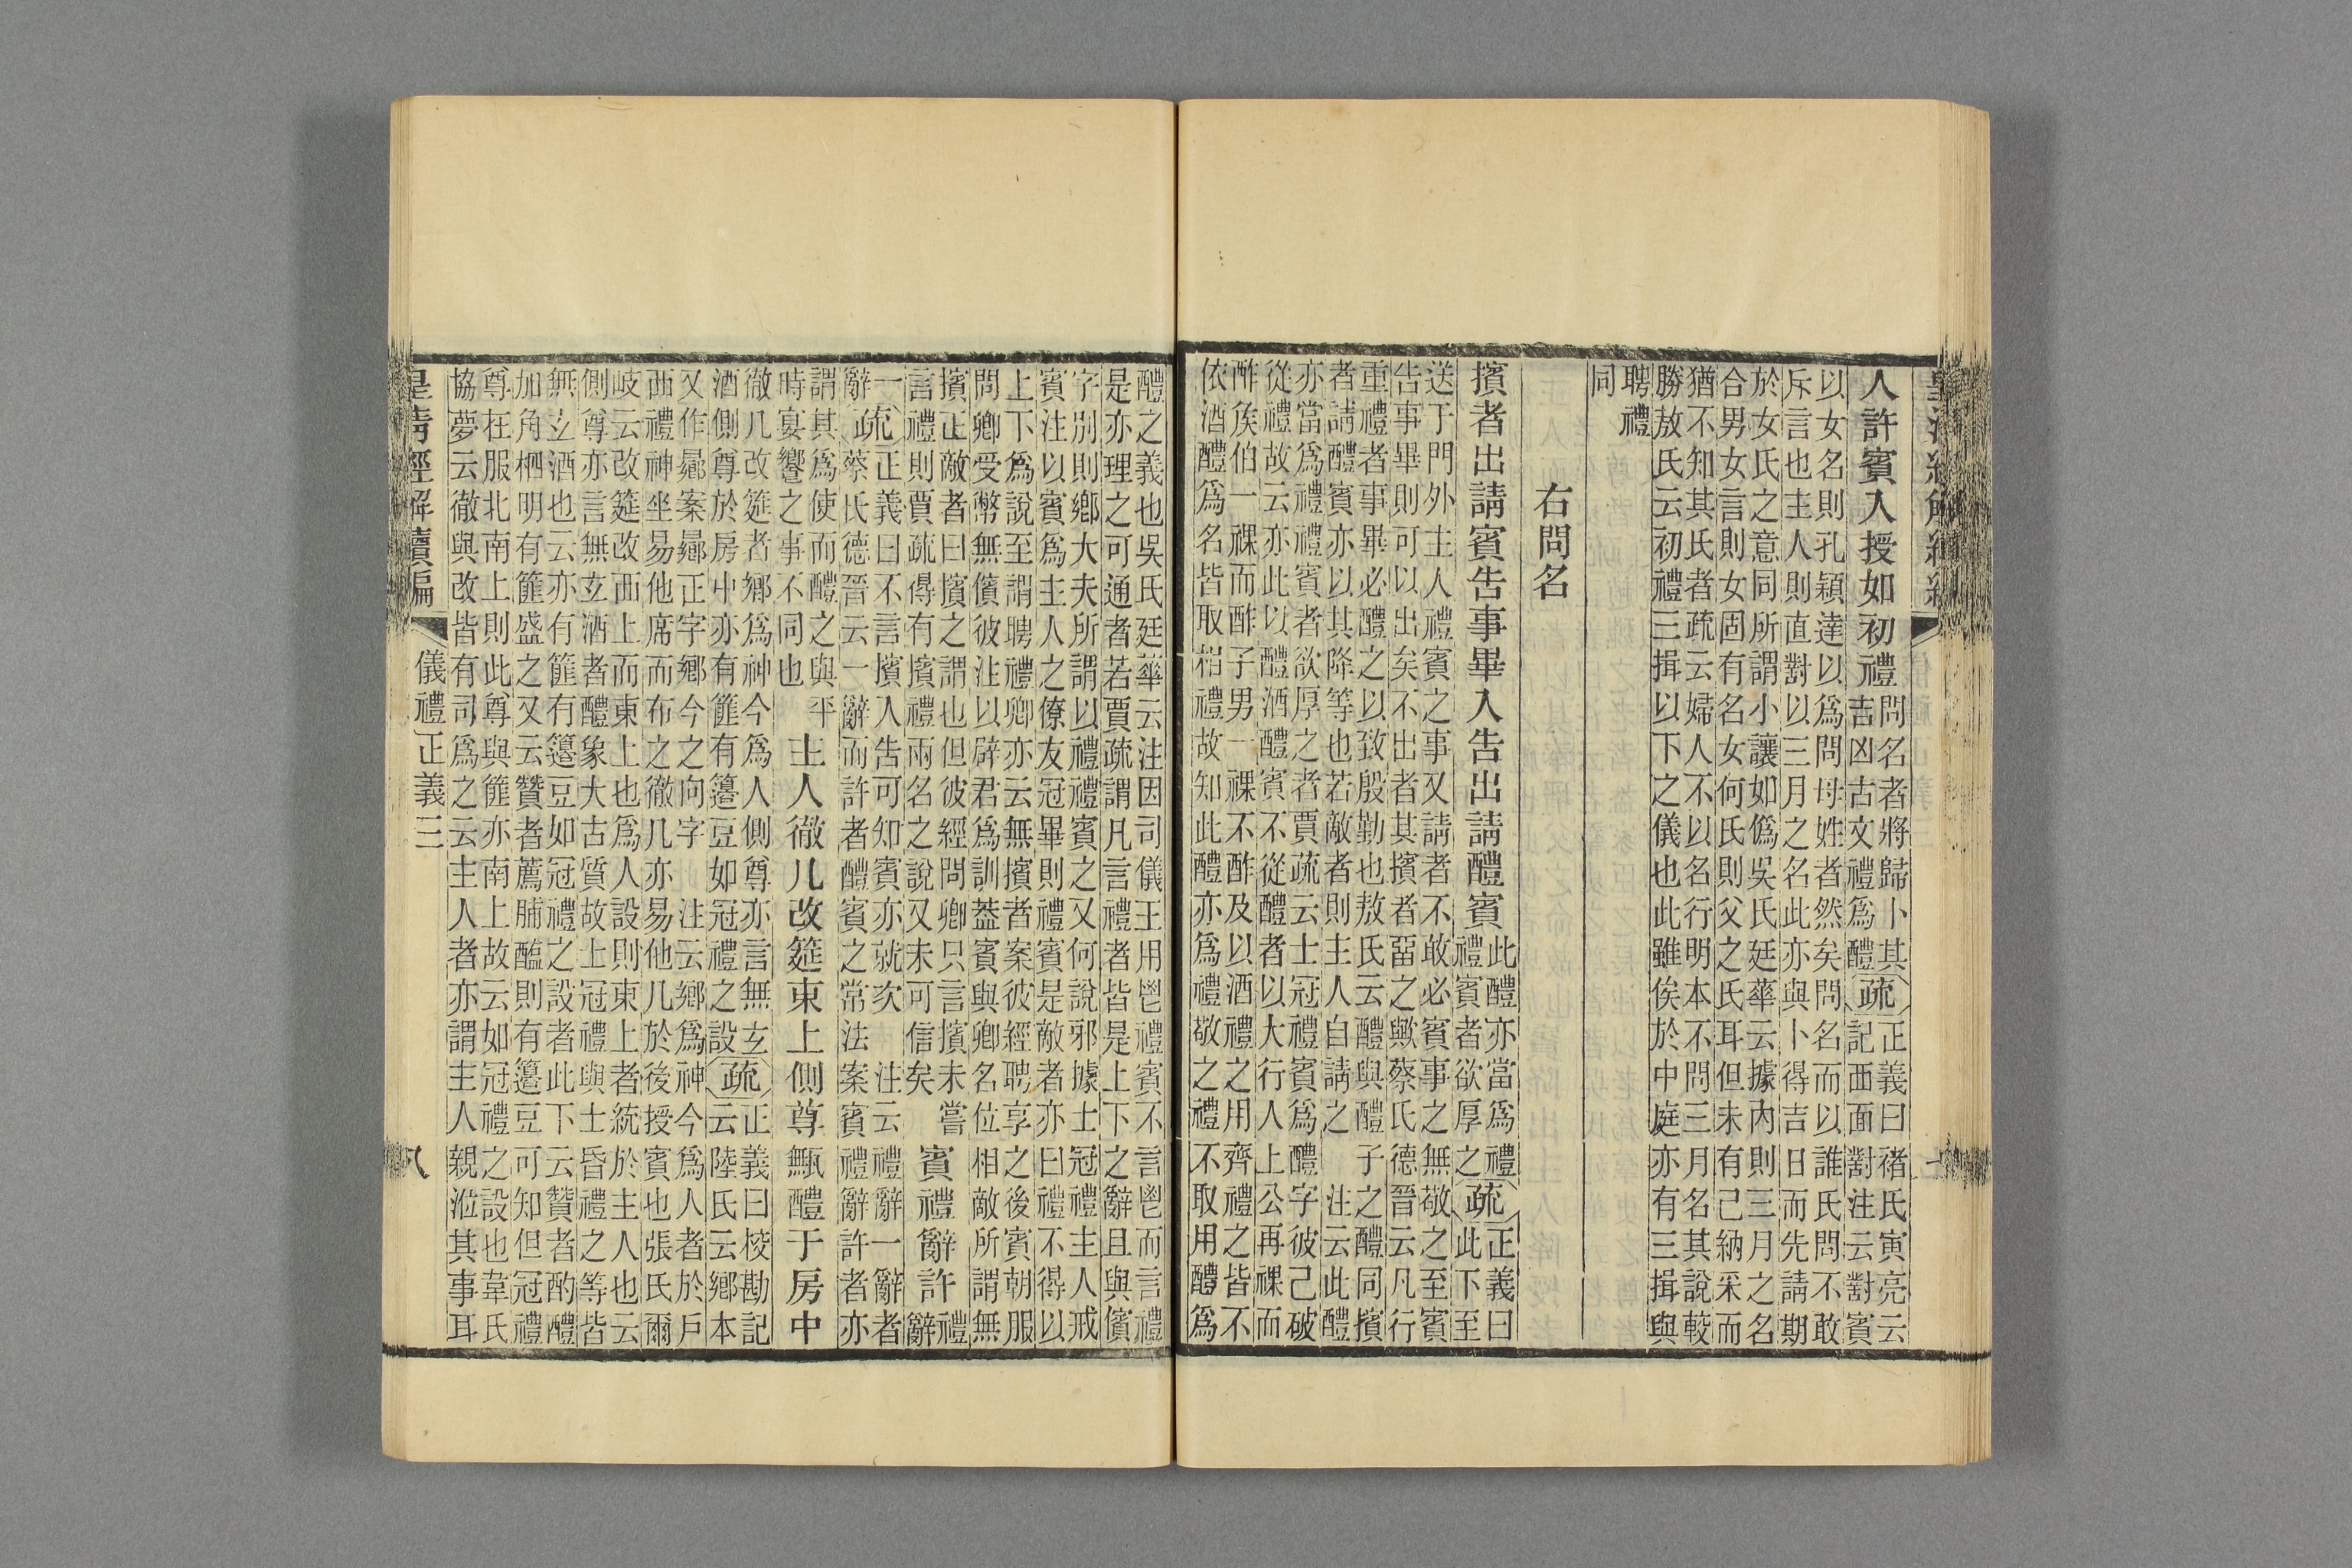 人許賓入授如初禮問名者將歸卜其
吉凶古文禮爲醴疏正義曰褚氏寅亮云
記西面對注云對賓
以女名則孔穎達以爲問母姓者然矣問名而以誰氏問不敢
斥言也主人則直對以三月之名此亦與卜得吉日而先請期
於女氏之意同所謂小讓如僞吳氏廷華云據內則三月之名
合男女言則女固有名女何氏則父之氏耳但未有己納采而
猶不知其氏者疏云婦人不以名行明本不問三月名其說較
勝敖氏云初禮三揖以下之儀也此雖俟於中庭亦有三揖與
聘禮
同
右問名
擯者出請賓告事畢入告出請醴賓此醴亦當爲禮
禮賓者欲厚之疏正義曰
此下至
送于門外主人禮賓之事又請者不敢必賓事之無敬之至賓
告事畢則可以出矣不出者其擯者畱之歟蔡氏德晉云凡行
重禮者事畢必醴之以致殷勤也敖氏云醴與醴子之醴同擯
者請醴賓亦以其降等也若敵者則主人自請之 注云此醴
亦當爲禮禮賓者欲厚之者賈疏云士冠禮賓爲醴字彼己破
從禮故云亦此以醴酒醴賓不從醴者以大行人上公再祼而
酢矦伯一祼而酢子男一祼不酢及以酒禮之用齊禮之皆不
依酒醴爲名皆取相禮故知此醴亦爲禮敬之禮不取用醴爲
醴之義也吳氏廷華云注因司儀王用鬯禮賓不言鬯而言禮
是亦理之可通者若賈疏謂凡言禮者皆是上下之辭且與儐
字別則鄉大夫所謂以禮禮賓之又何說邪據士冠禮主人戒
賓注以賓爲主人之僚友冠畢則禮賓是敵者亦曰禮不得以
上下爲說至謂聘禮卿亦云無擯者案彼經聘享之後賓朝服
問卿受幣無儐彼注以辟君爲訓葢賓與卿名位相敵所謂無
擯正敵者曰擯之謂也但彼經問卿只言擯未嘗
言禮則賈疏得有擯禮兩名之說又未可信矣賓禮辭許禮
辭
一
辭疏正義曰不言擯人告可知賓亦就次 注云禮辭一辭者
蔡氏德晉云一辭而許者醴賓之常法案賓禮辭許者亦
謂其爲使而醴之與平
時宴饗之事不同也主人徹几改筵東上側尊甒醴于房中
徹几改筵者鄉爲神今爲人側尊亦言無玄
酒側尊於房中亦有篚有籩豆如冠禮之設疏正義曰校勘記
云陸氏云鄉本
又作曏案曏正字鄉今之向字 注云鄉爲神今爲人者於戶
西禮神坐易他席而布之徹几亦易他几於後授賓也張氏爾
岐云改筵改西上而東上也爲人設則東上者統於主人也云
側尊亦言無玄酒者醴象大古質故上冠禮與士昏禮之等皆
無玄酒也云亦有篚有籩豆如冠禮之設者此下云贊者酌醴
加角柶明有篚盛之又云贊者薦脯醢則有籩豆可知但冠禮
尊在服北南上則此尊與篚亦南上故云如冠禮之設也韋氏
協夢云徹與改皆有司爲之云主人者亦謂主人親涖其事耳
皇清經解續編 儀禮正義三 八